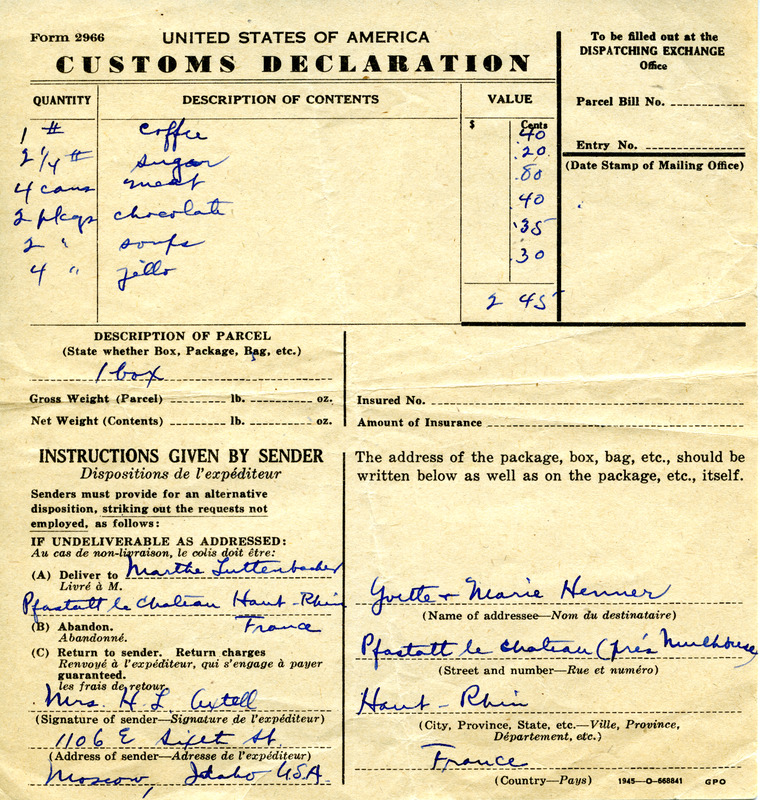 Form 2966
UNITED STATES OF AMERICA
CUSTOMS DECLARATION
To be filled out at the
DISPATCHING EXCHANGE
Office
Parcel Bill No.
Entry No.
(Date Stamp of Mailing Office)
QUANTITY DESCRIPTION OF CONTENTS VALUE
$ Cents
1 # coffee .40
2 1/4 # sugar .20
4 cans meat .80
2 pkgs chocolate .40
2 " soups .35
4 " jello .30
2 45
DESCRIPTION OF PARCEL
(State whether Box, Package, Bag, etc.)
1 box
Gross Weight (Parcel) lb. oz.
Net Weight (Contents) lb. oz.
Insured No.
Amount of Insurance
INSTRUCTIONS GIVEN BY SENDER
Dispositions de l'expéditeur
Senders must provide for an alternative
disposition, striking out the requests not
employed, as follows:
IF UNDELIVERABLE AS ADDRESSED:
Au cas de non-livraison, le colis doit être:
(A) Deliver to Marthe Luttenbacher
Livré à M.
Pfastatt le Chateau Haut-Rhin
(B) Abandon. France
Abandonné.
(C) Return to sender. Return charges
Renvoyé à l'expéditeur, qui s'engage à payer
guaranteed.
les frais de retour.
Mrs. H. L. Axtell
(Signature of sender—Signature de l'expéditeur)
1106 E Sixth St.
(Address of sender—Adresse de l'expéditeur)
Moscow, Idaho USA.
The address of the package, box, bag, etc., should be
written below as well as on the package, etc., itself.
Yvette + Marie Henner
(Name of addressee—Nom du destinataire)
Pfastatt le Chateau (près Mulhouse)
(Street and number—Rue et numéro)
Haut-Rhin
(City, Province, State, etc.—Ville, Province,
Département, etc.)
France
(Country—Pays) 1945—O-668841 GPO